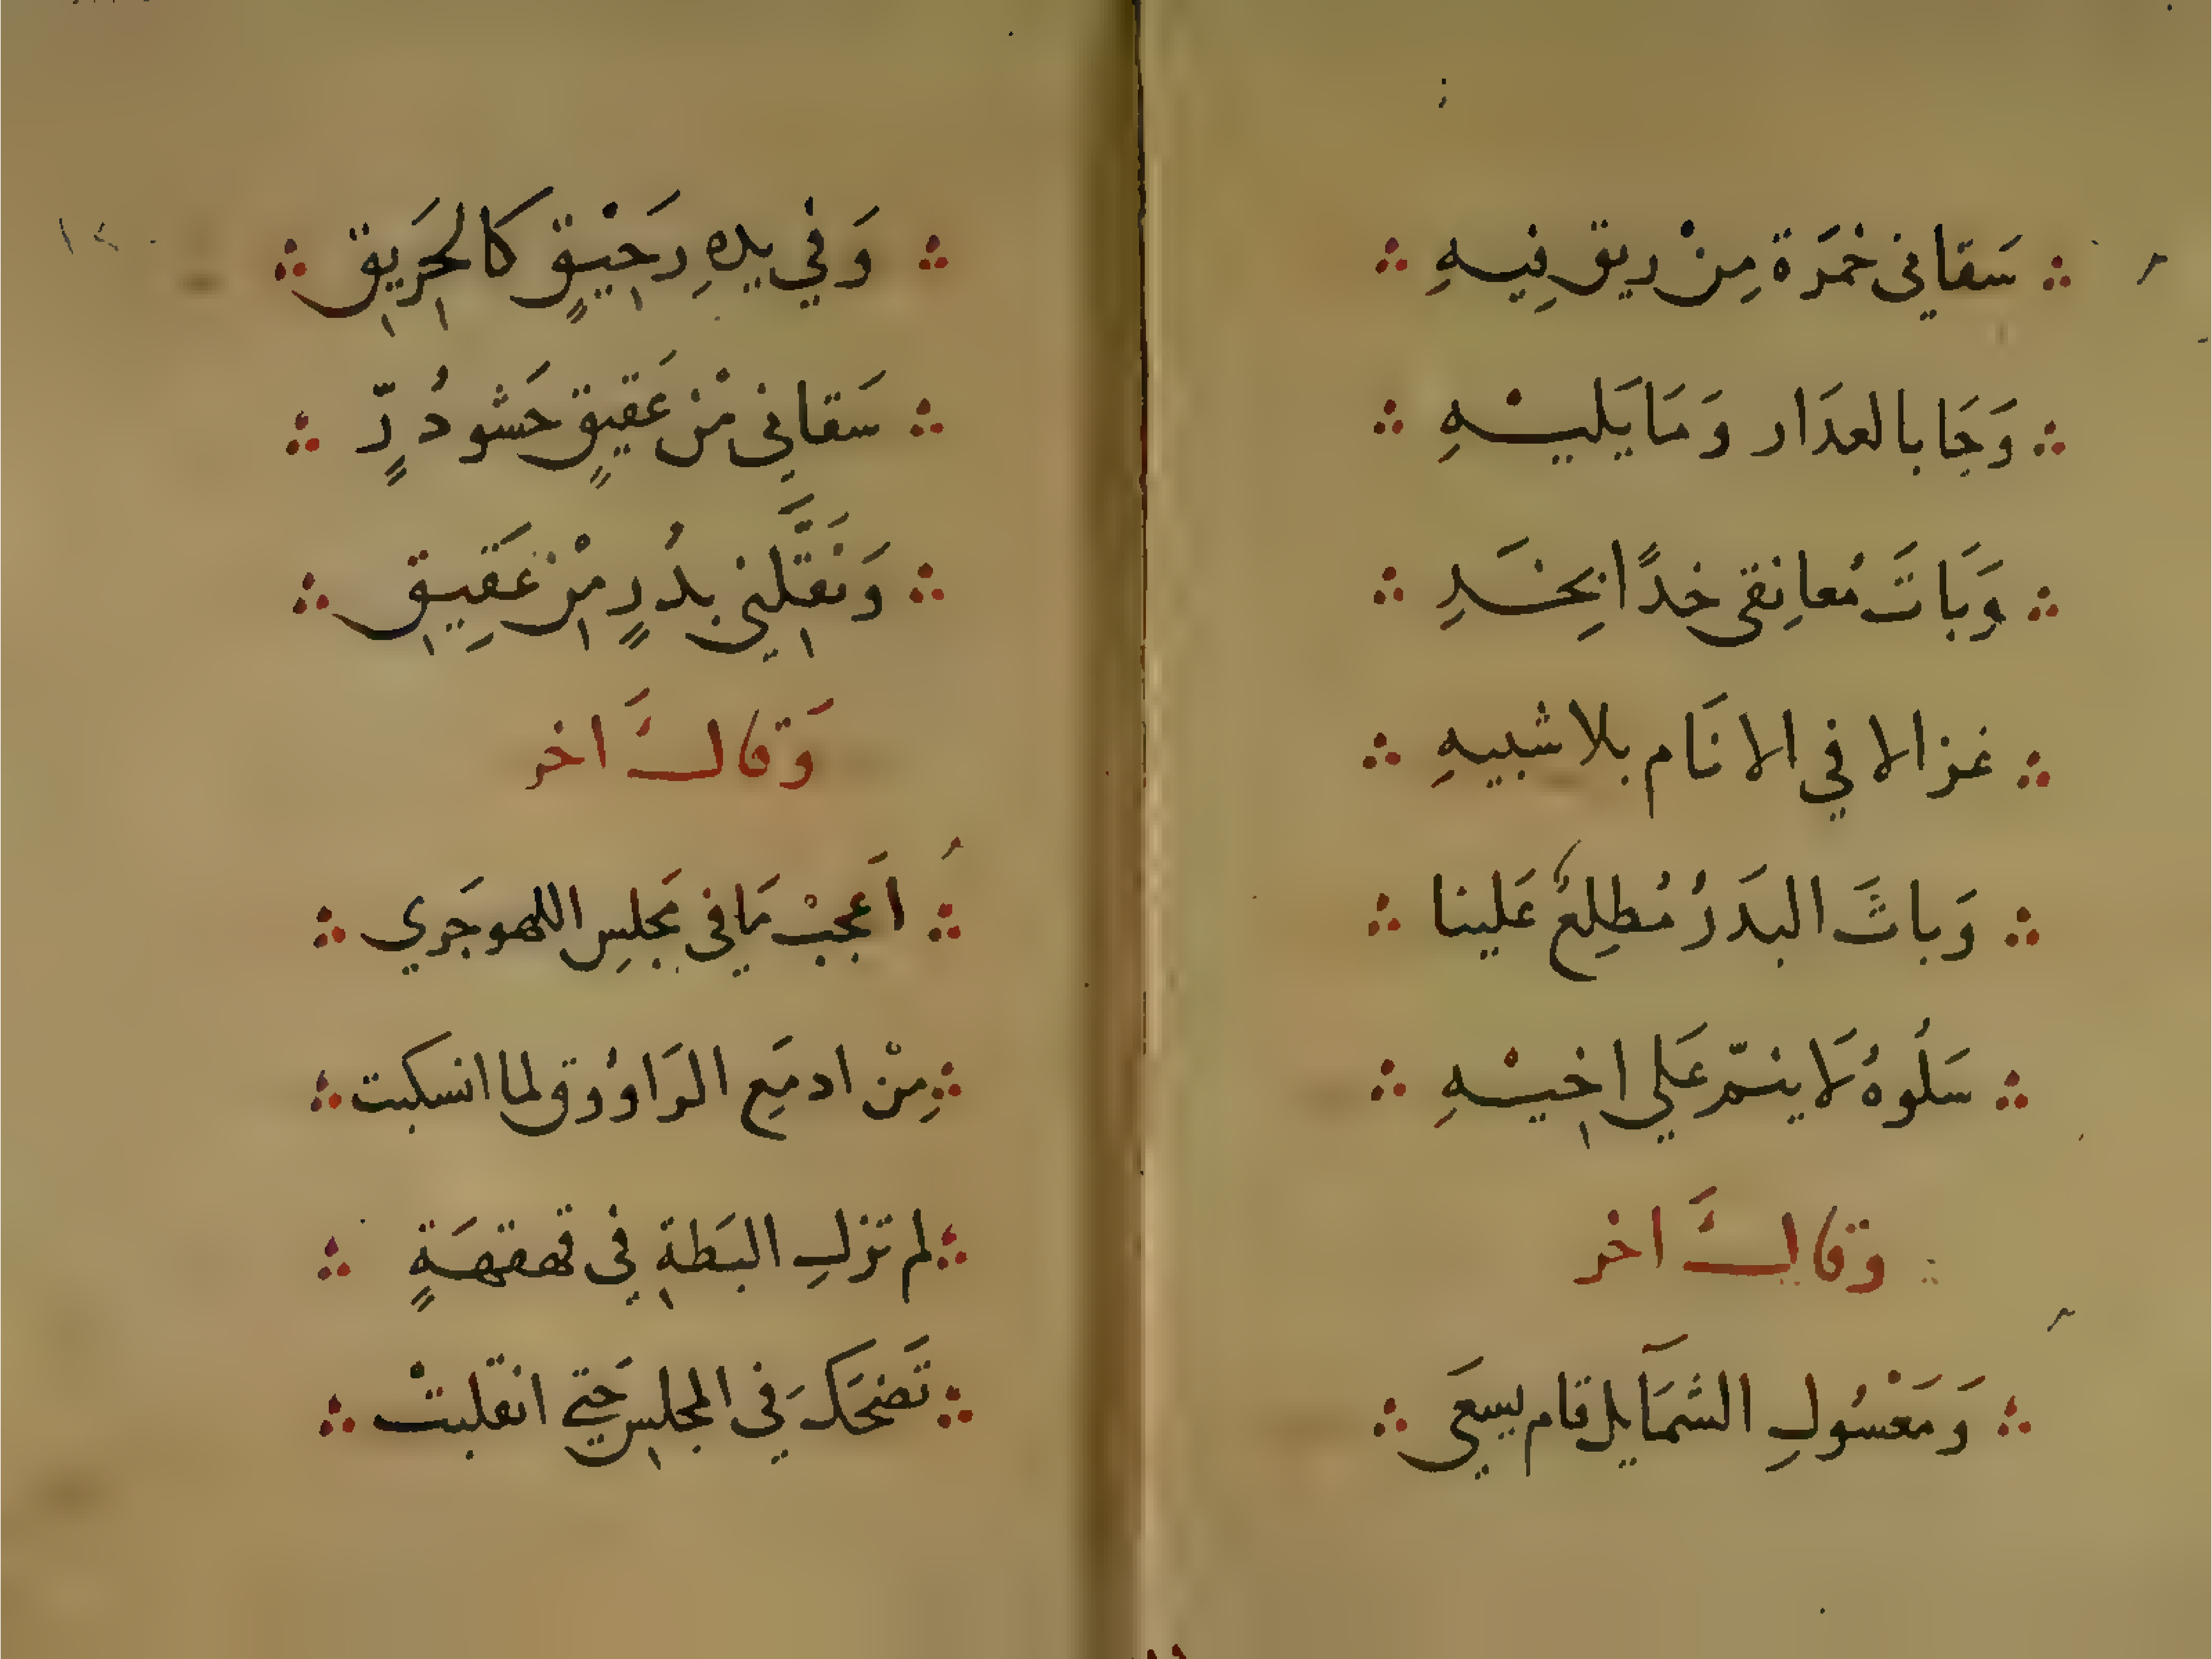 سَقاني خمْرَة مِنْ ريق فِيهِ
وَجَا بالعدَار وَمَا يَليْهِ
وَبَاتَ مُعانِقي خدًا بِخَدِ
غزالا في الانَام بلا شبيهِ
وَباتَ البدَرُ مُطلِعٌ عَلينا
سَلُوهُ لَا ينمّ عَلي اخيْهِ
وقالَ اخر
وَمَعْسُولِ الشمَآيل قام يسعَي
وَفي يدهِ رَحيْقٍ كالحَريق
سَقانِي مْن عَقيقٍ حَشو دُرٍّ
وَنَقَّلني بدُرٍ مْن عَقِيق
وَقالَ اخر
اَعجبْ مَا في مَجلسِ اللهو جَري
مِنْ ادمَعِ الرَاوُوق لما انسكبت
لم تزلِ البَطةِ في قهقهَةٍ
تَضحَكَ في المجلس حَتي انقلبتْ